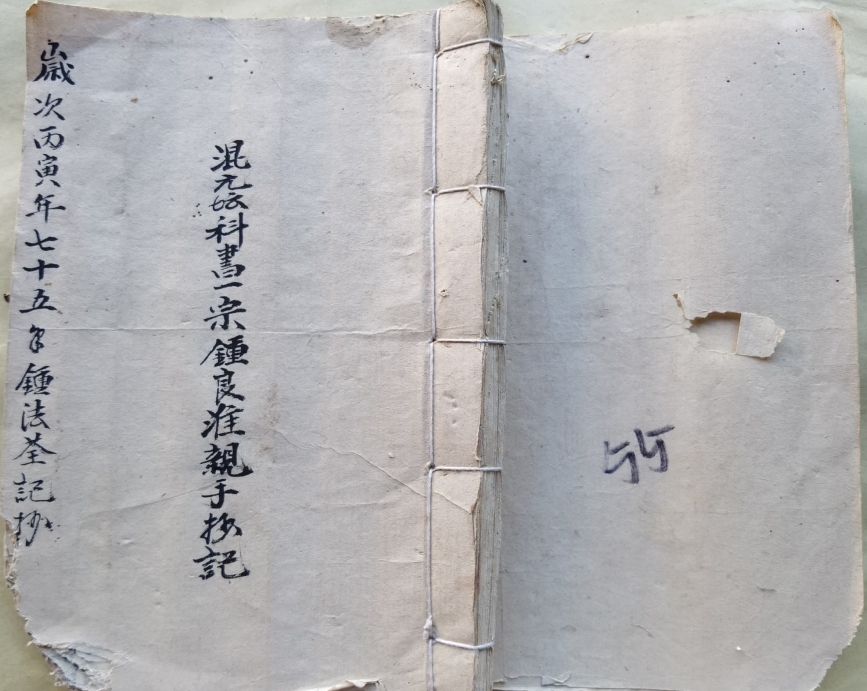 混元科書一宗鍾良淮親手抄記
歲次丙寅年七十五鍾法荃記抄